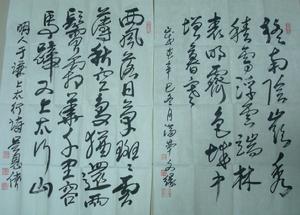 终南陰嶺秀
積雪浮雲端林
表明霽色城中
增暮寒
西風落日草斑斑雲
薄秋空鳥獨還兩
鬢霜華千里客
馬蹄又上太行山
明人于謙上太行詩